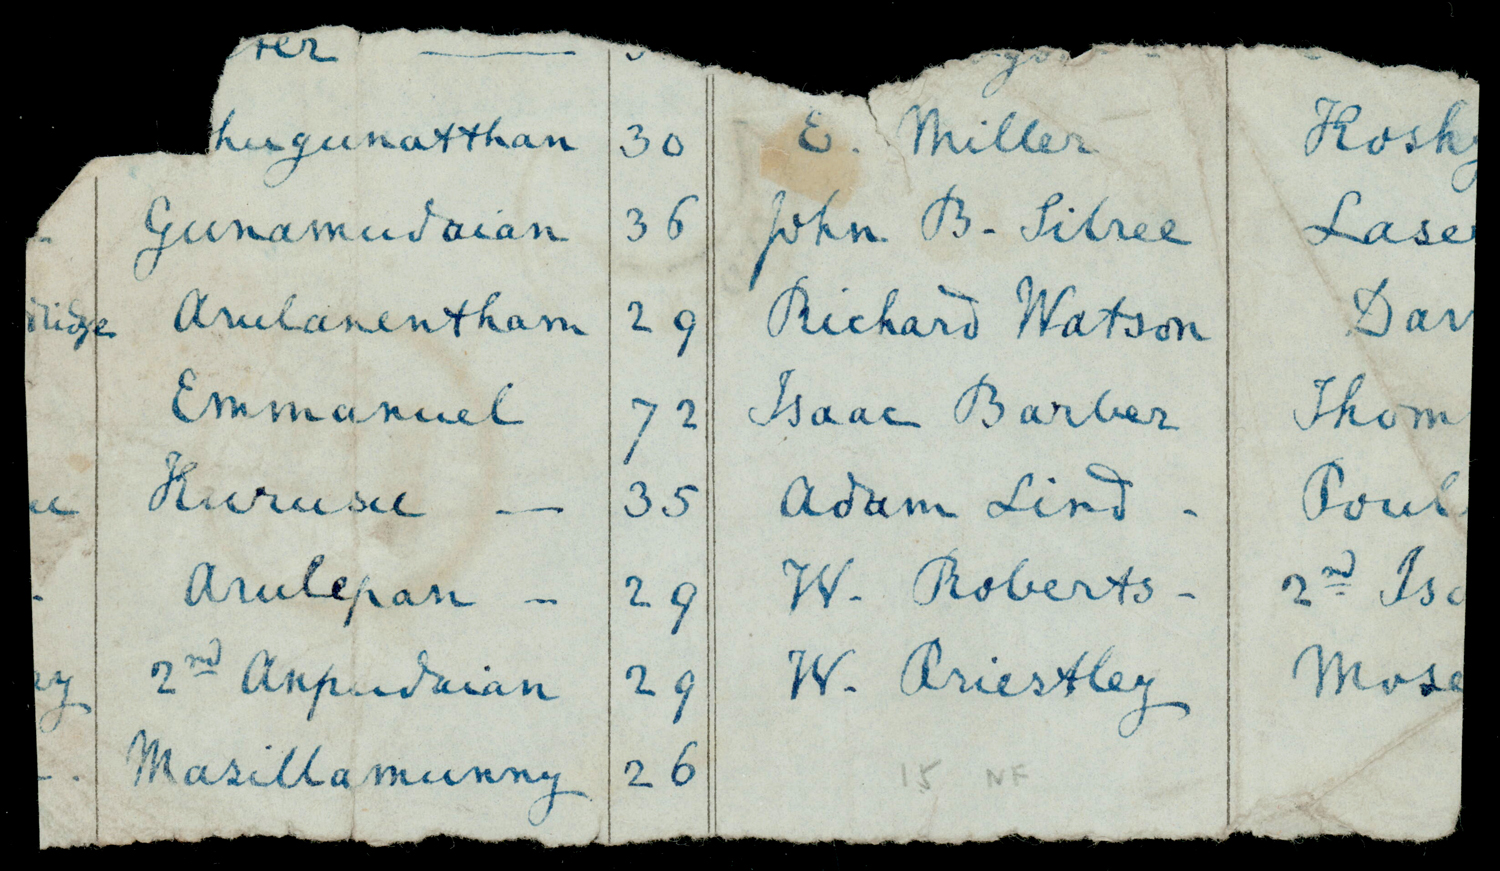 hugunatthan 30 E. Miller Kosh
Gunamudaian 36 John B. Sibree Lase
dridge Arulanentham 29 Richard Watson Dav
Emmanuel 72 Isaac Barber Thom
Kurusu — 35 Adam Lind - Poul
Arulepan - 29 W. Roberts - 2nd Isa
2nd Anpudaian 29 W. Priestley Mose
Masillamunny 26
15 NF